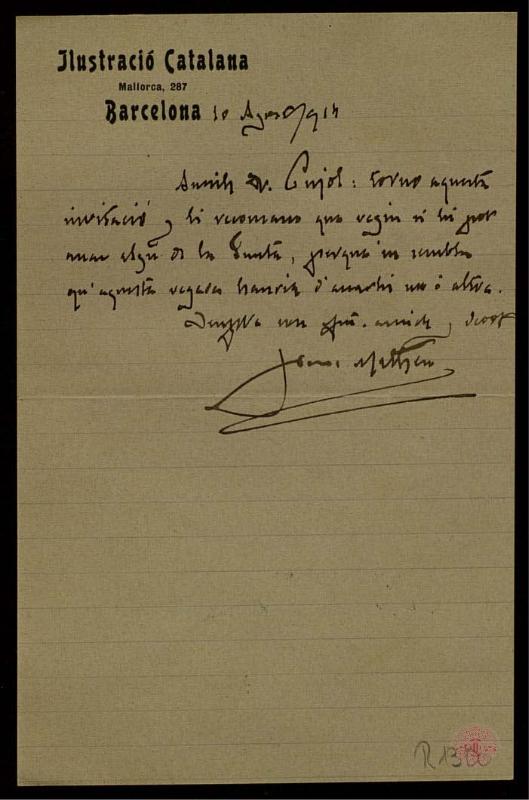 Ilustració Catalana
Mallorca, 287
Barcelona 10 Agost 914
Amich Sr. Pujol: torno aquesta
invitació y li recomano que vegin si hi pot
anar algú de la Junta, perque 'm sembla
qu'aquesta vegada hauria d'anarhi un ó altre.
Disposi son afm. amich y
Matheu
R.138